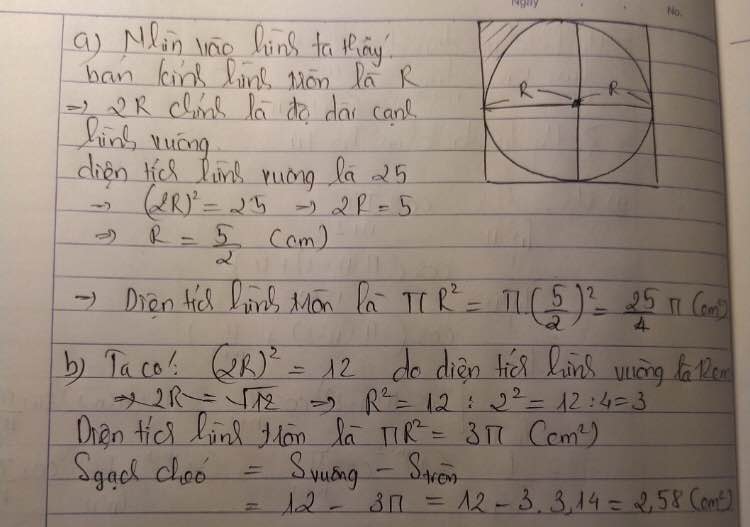 Ngày
No.
a) Nhìn vào hình ta thấy.
bán kính hình tròn là R
⇒ 2R chính là độ dài cạnh
hình vuông.
R R
diện tích hình vuông là 25
→ (2R)² = 25 → 2R = 5
⇒ R = 5/2 (cm)
→ Diện tích hình tròn là πR² = π.(5/2)² = 25/4 π (cm²)
b) Ta có: (2R)² = 12 do diện tích hình vuông là 12cm
⇒ 2R = √12 ⇒ R² = 12 : 2² = 12 : 4 = 3
Diện tích hình tròn là πR² = 3π (cm²)
Sgạch chéo = Svuông - Stròn
= 12 - 3π = 12 - 3. 3,14 = 2,58 (cm²)